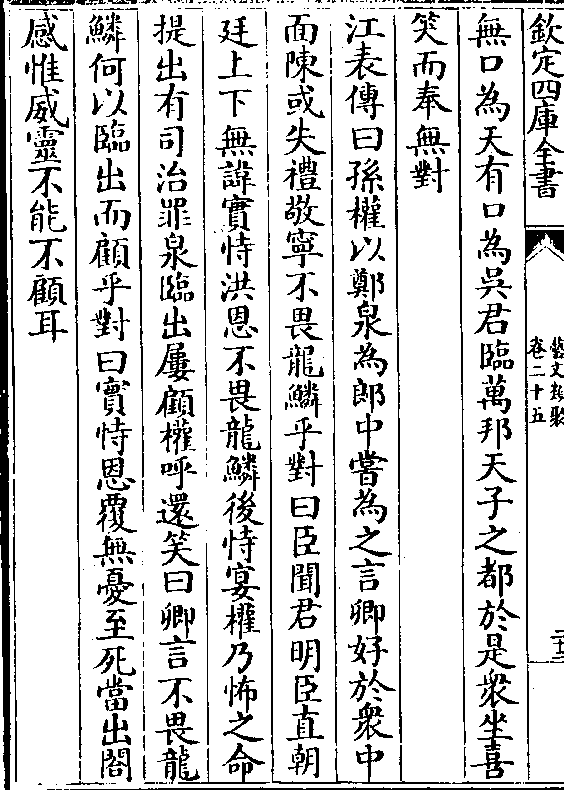 欽定四庫全書
藝文類聚
卷二十五
無口為天有口為吳君臨萬邦天子之都於是衆坐喜
笑而奉無對
江表傳曰孫權以鄭泉為郎中嘗為之言卿好於衆中
面陳或失禮敬寧不畏龍鱗乎對曰臣聞君明臣直朝
廷上下無諱實恃洪恩不畏龍鱗後恃宴權乃怖之命
提出有司治罪泉臨出屢顧權呼還笑曰卿言不畏龍
鱗何以臨出而顧乎對曰實恃恩覆無憂至死當出閤
感惟威靈不能不顧耳